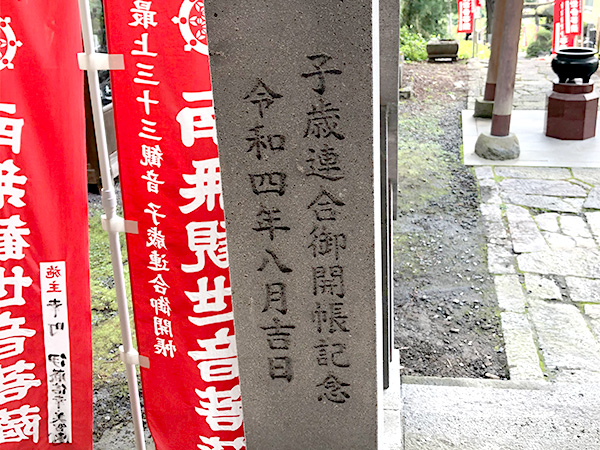 子歳連合御開帳記念
令和四年八月吉日
最上三十三観音 子歳連合御開帳
南無観世音菩薩
南無観世音菩薩
施主